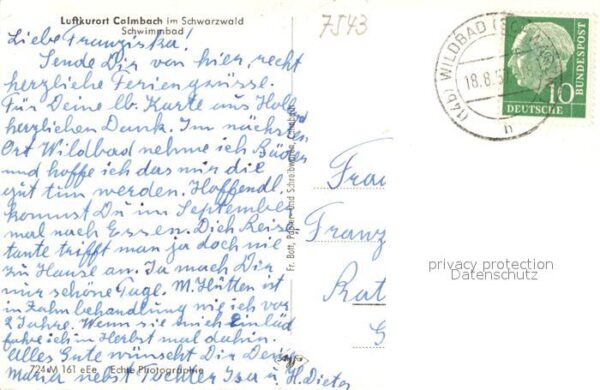 Luftkurort Calmbach im Schwarzwald
Schwimmbad
7543
Liebe Franziska!
Sende Dir von hier, recht
herzliche Feriengrüsse.
Für Deine lb. Karte aus Holland
herzlichen Dank. Im nächsten
Ort Wildbad nehme ich Bäder
und hoffe ich das mir die
gut tun werden. Hoffendl.
kommst Du im September
mal nach Essen. Dich Reise
tante trifft man ja doch nie
zu Hause an. Ja mach Dir
nur schöne Tage. M. Hütten ist
in Zahnbehandlung wie ich vor
2 Jahre. Wenn sie mich Einläd
fahre ich im Herbst mal dahin.
Alles Gute wünscht Dir Deine
724 M 161 eEe Echte Photographie
Maria nebst Tochter Isa u. H. Dieter
Fr. Bott, Papier- und Schreibwaren,
(14b) WILDBAD
18.8.5
h
10
DEUTSCHE
BUNDESPOST
Frau
Franz
Rat
privacy protection
Datenschutz